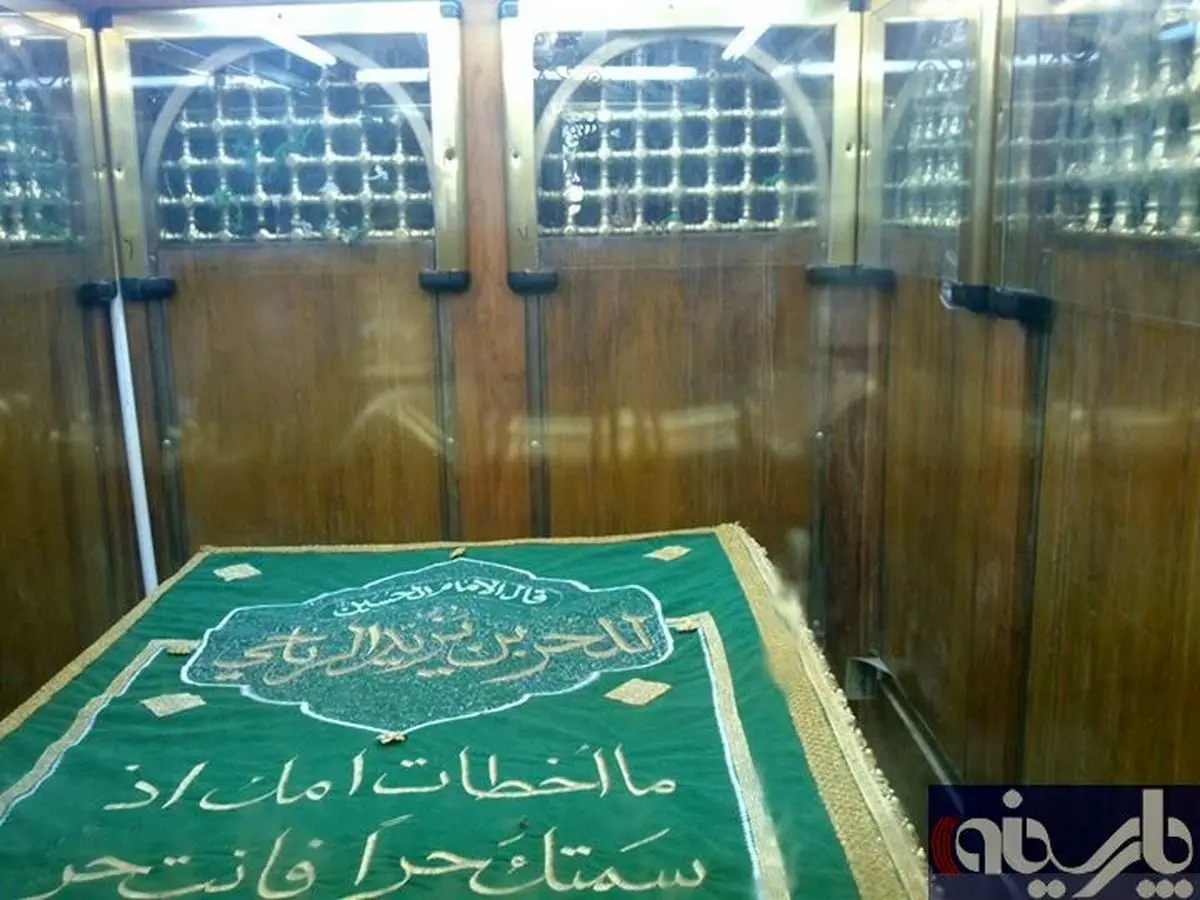 قال الامام الحسين
للحر بن يزيد الرياحي
ما اخطات امك اذ
سمتك حراً فانت حر
پارسینه